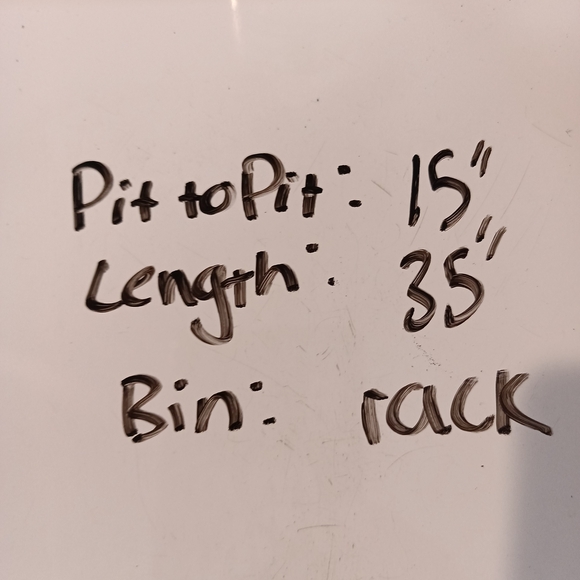 Pit to Pit: 15"
Length: 35"
Bin: rack